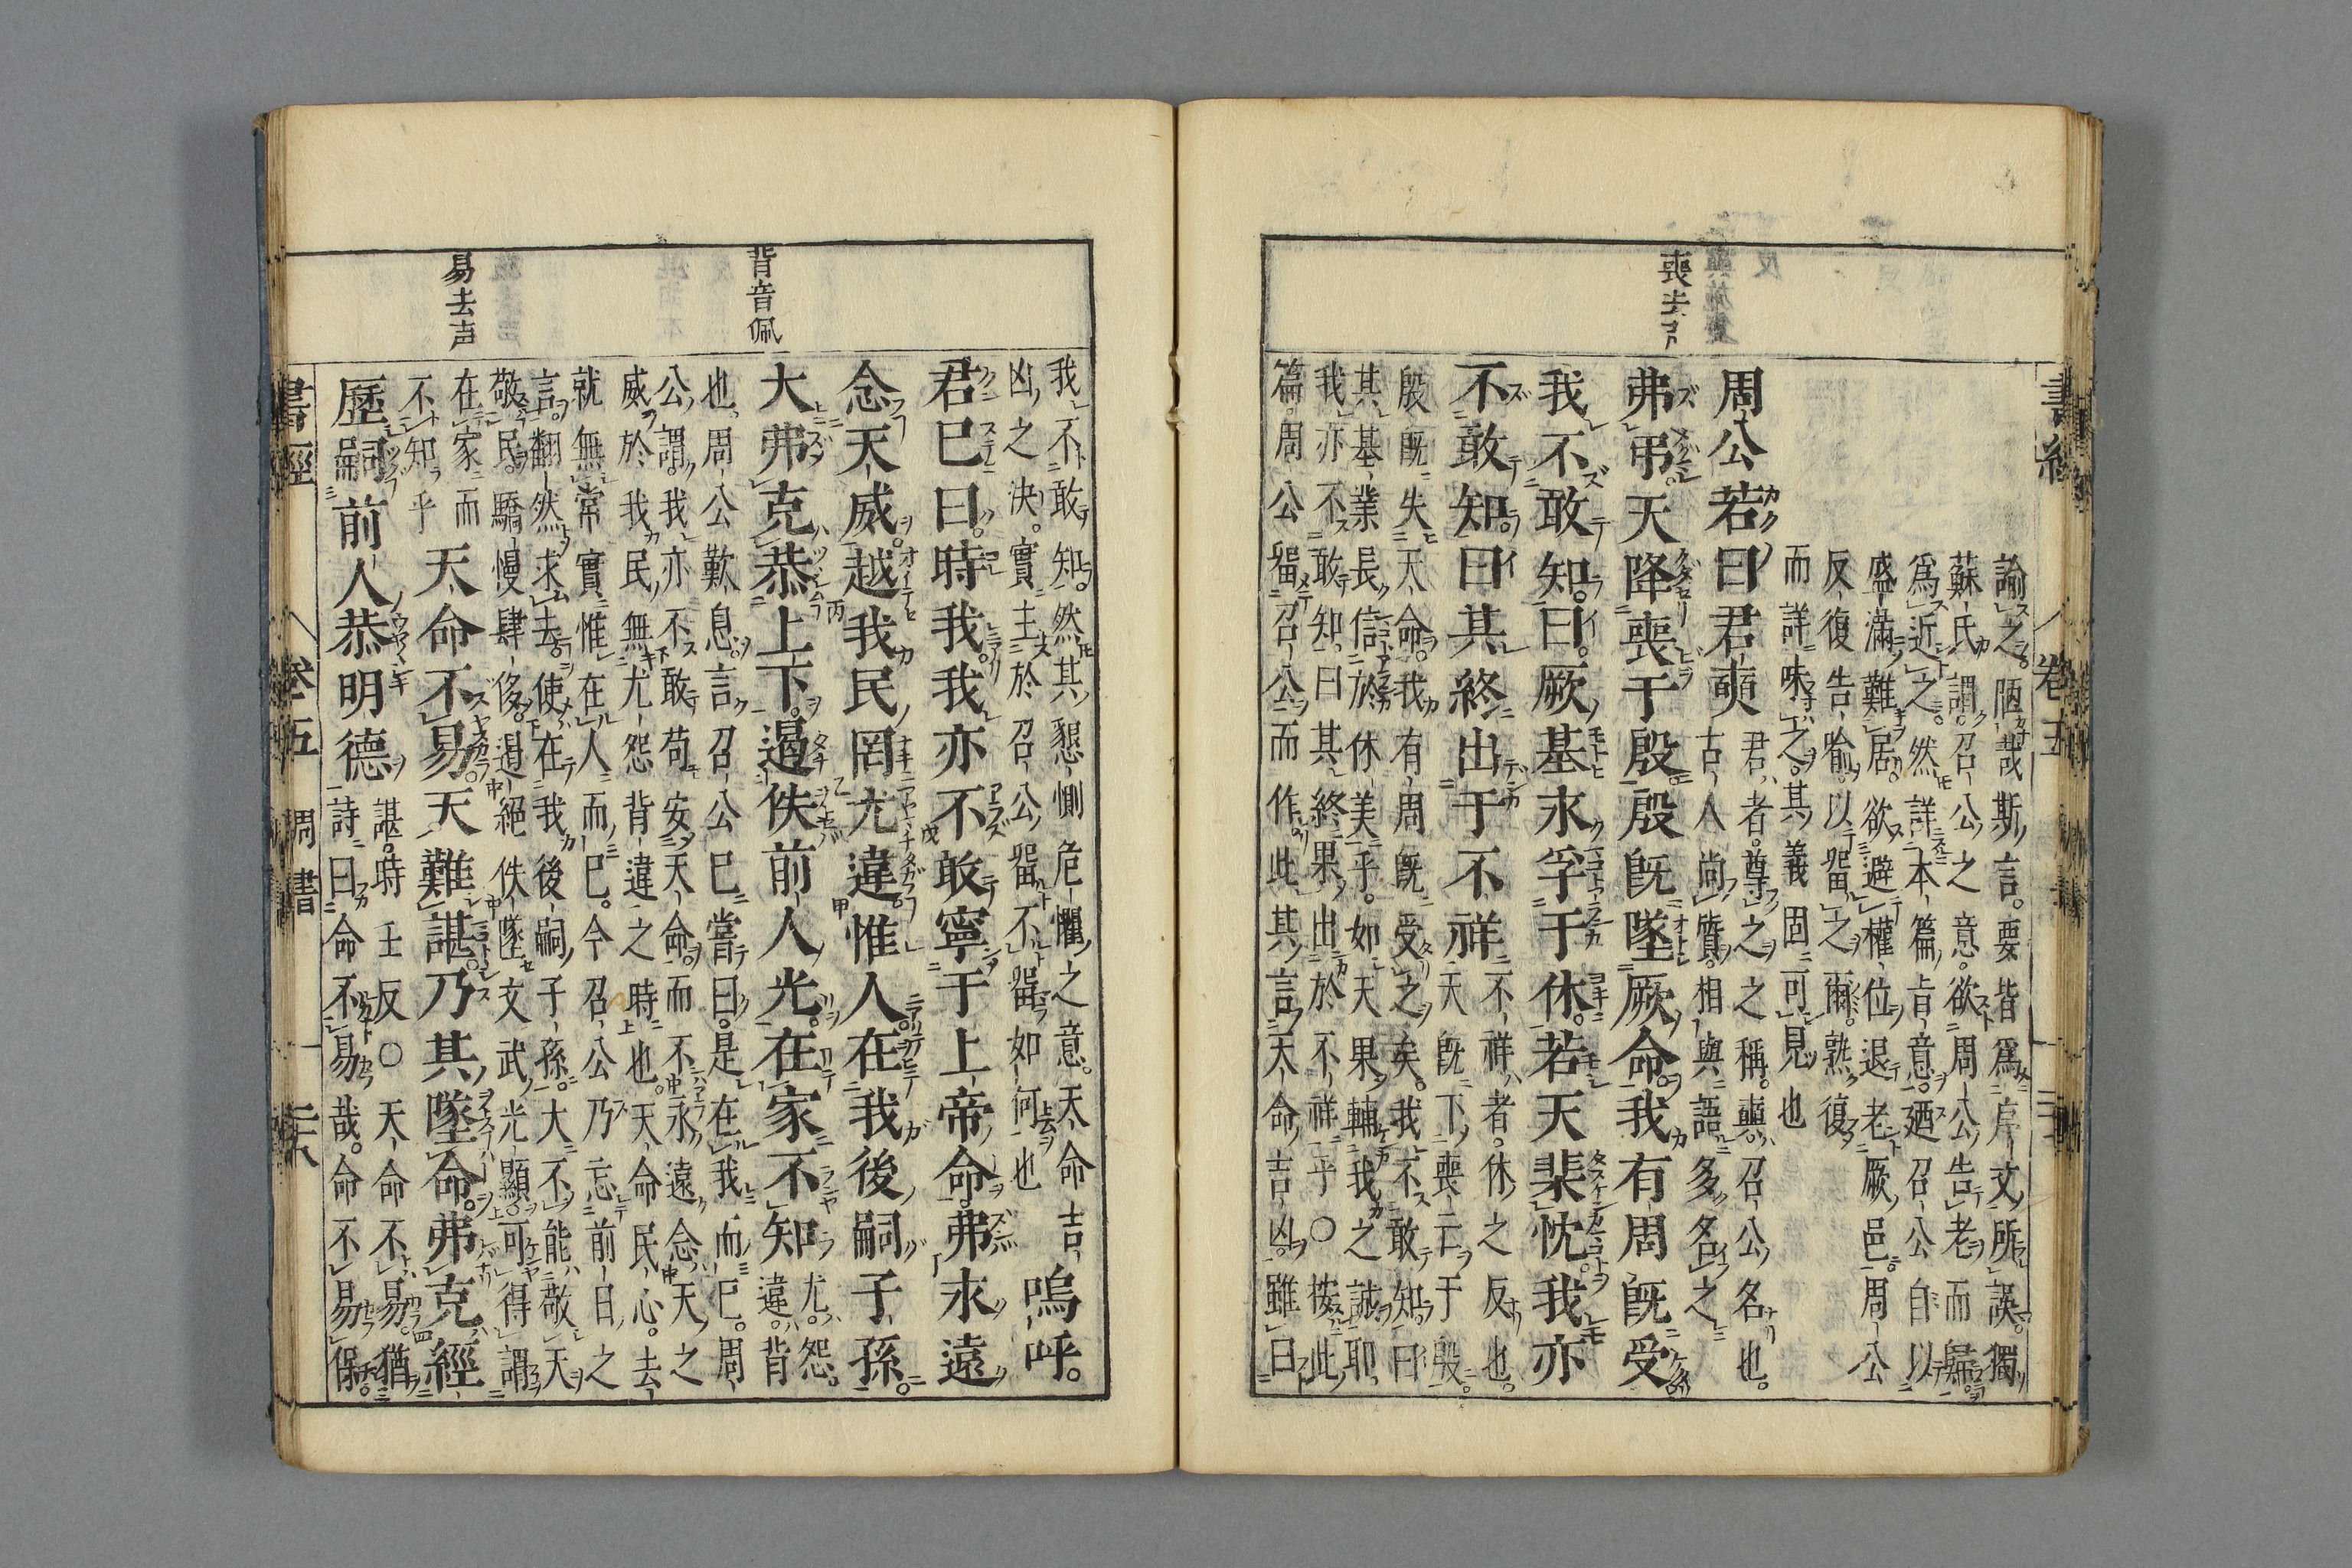 喪去声
書經 卷五
諭之。陋哉斯言。要皆爲序文所誤。獨
蘇氏謂。召公之意。欲周公告老而歸。
爲近之。然詳本篇旨意。廼召公自以
盛滿難居。欲避權位退老厥邑。周公
反復告喻。以留之爾。熟復
而詳味之。其義固可見也
周公若曰君奭
君者。尊之之稱。奭召公名也。
古人尚質。相與語多名之
弗弔天降喪于殷殷既墜厥命。我有周既受。
我不敢知。曰。厥基永孚于休。若天棐忱我亦
不敢知。曰其終出于不祥
不祥者。休之反也。
天既下喪亡于殷。
殷既失天命。我有周既受之矣。我不敢知。曰
其基業長信於休美乎。如天果輔我之誠耶。
我亦不敢知。曰其終果出於不祥乎○按此
篇。周公留召公而作此其言天命吉凶。雖曰
背音佩
易去声
我不敢知。然其懇惻危懼之意。天命吉
凶之決。實主於召公留不留如何也
嗚呼。
君已曰。時我。我亦不敢寧于上帝命。弗永遠
念天威。越我民罔尤違。惟人在我後嗣子孫。
大弗克恭上下。遏佚前人光。在家不知
尤怨。
違。背
也。周公歎息言召公已嘗曰。是在我而已。周
公謂。我亦不敢苟安天命。而不永遠念天之
威於我民無尤怨背違之時也。天命民心。去
就無常。實惟在人而已。今召公乃忘前日之
言。翻然求去。使在我後嗣子孫。大不能敬天
敬民。驕慢肆侈。遏絕佚墜文武光顯。可得謂
在家而
不知乎
天命不易。天難諶。乃其墜命。弗克經
歷嗣前人恭明德
諶。時壬反○天命不易。猶
詩曰命不易哉。命不易保。
書經 卷五 周書 三六